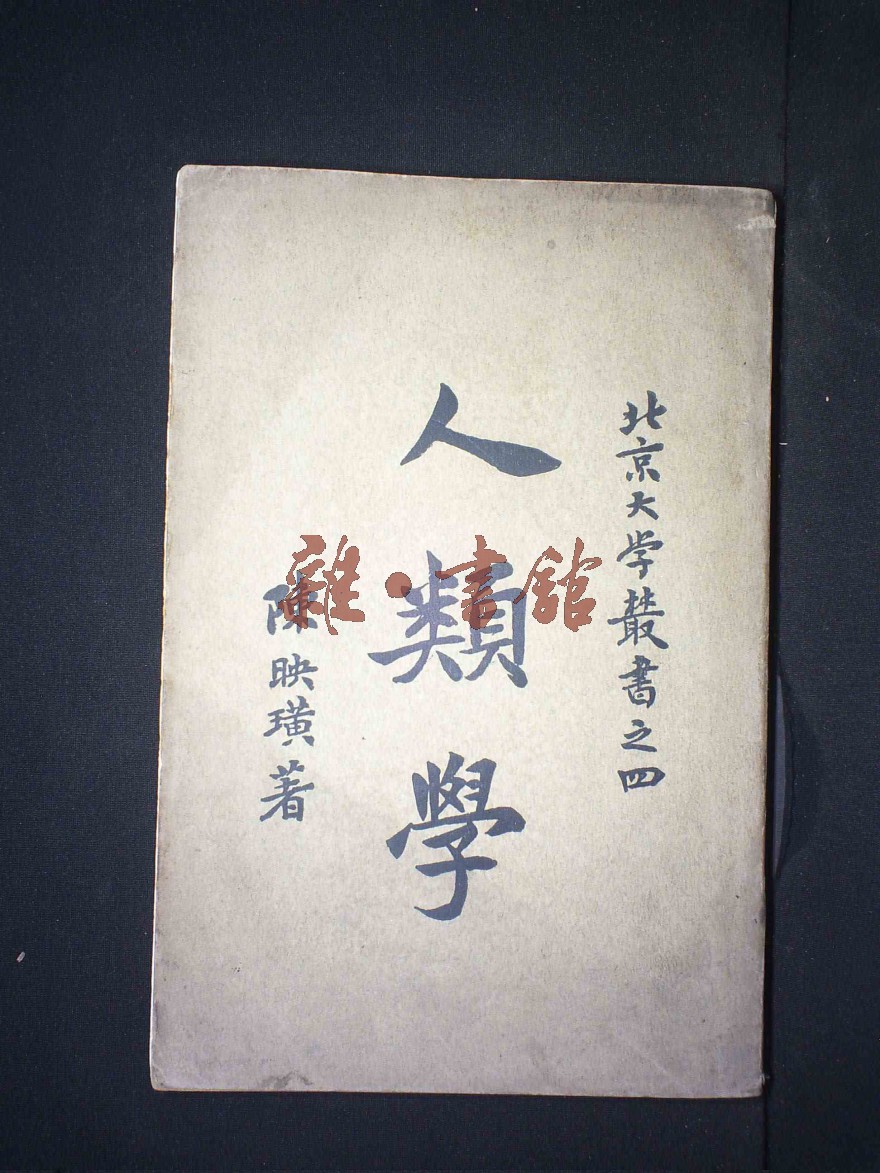 北京大学叢書之四
人類學
陳映璜著
雜·書館